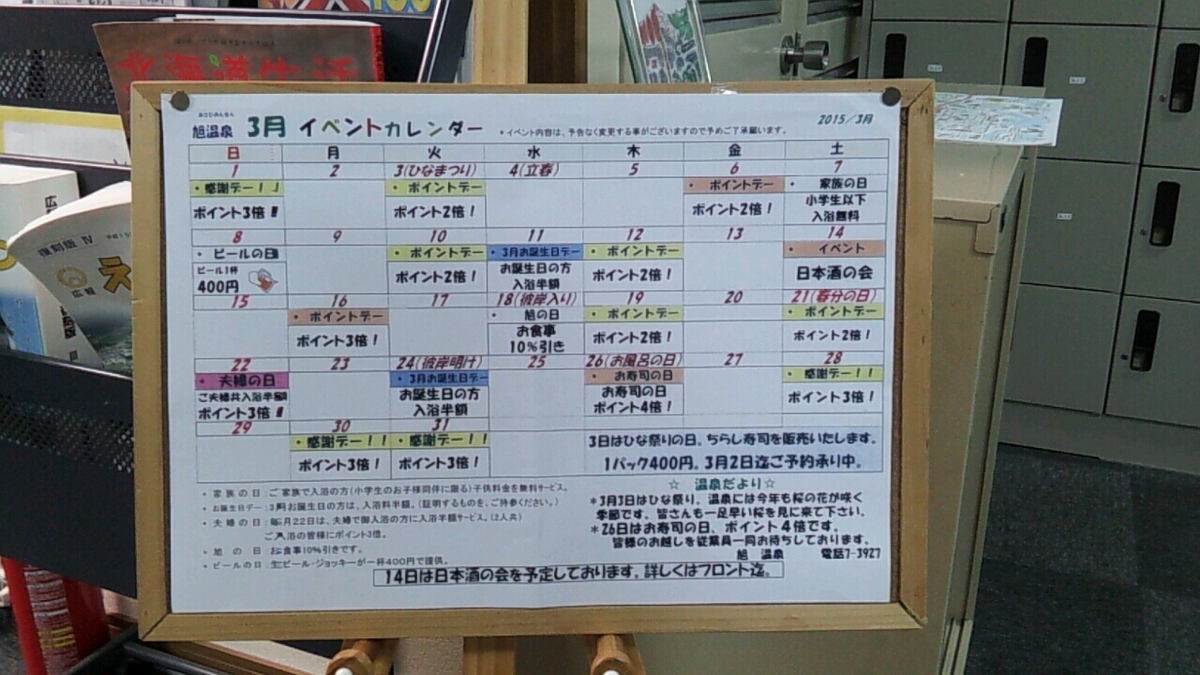 北海道生活
復刻版 Ⅳ
広報
あさひおんせん
旭温泉 3月 イベントカレンダー
*イベント内容は、予告なく変更する事がございますので予めご了承願います。
2015/3月
日 月 火 水 木 金 土
1 2 3(ひなまつり) 4(立春) 5 6 7
・感謝デー!! ・ポイントデー ・ポイントデー ・家族の日
ポイント3倍! ポイント2倍! ポイント2倍! 小学生以下
入浴無料
8 9 10 11 12 13 14
・ビールの日 ・ポイントデー ・3月お誕生日デー ・ポイントデー ・イベント
ビール1杯 ポイント2倍! お誕生日の方 ポイント2倍! 日本酒の会
400円 入浴半額
15 16 17 18(彼岸入り) 19 20 21(春分の日)
・ポイントデー ・旭の日 ・ポイントデー ・ポイントデー
ポイント3倍! お食事 ポイント2倍! ポイント2倍!
10%引き
22 23 24(彼岸明け) 25 26(お風呂の日) 27 28
・夫婦の日 ・3月お誕生日デー ・お寿司の日 ・感謝デー!!
ご夫婦共入浴半額 お誕生日の方 お寿司の日 ポイント3倍!
ポイント3倍! 入浴半額 ポイント4倍!
29 30 31
・感謝デー!! ・感謝デー!!
ポイント3倍! ポイント3倍!
3日はひな祭りの日。ちらし寿司を販売いたします。
1パック400円。3月2日迄ご予約承り中。
・家族の日:ご家族で入浴の方(小学生のお子様同伴に限る)子供料金を無料サービス。
・お誕生日デー:3月お誕生日の方は、入浴料半額。(証明するものを、ご持参ください。)
・夫婦の日:毎月22日は、夫婦で御入浴の方に入浴半額サービス。(2人共)
ご入浴の皆様にポイント3倍。
・旭の日:お食事10%引きです。
・ビールの日:生ビール・ジョッキーが一杯400円で提供。
☆ 温泉だより☆
*3月3日はひな祭り、温泉には今年も桜の花が咲く
季節です。皆さんも一足早い桜を見に来て下さい。
*26日はお寿司の日、ポイント4倍です。
皆様のお越しを従業員一同お待ちしております。
旭 温泉 電話7-3927
14日は日本酒の会を予定しております。詳しくはフロント迄。